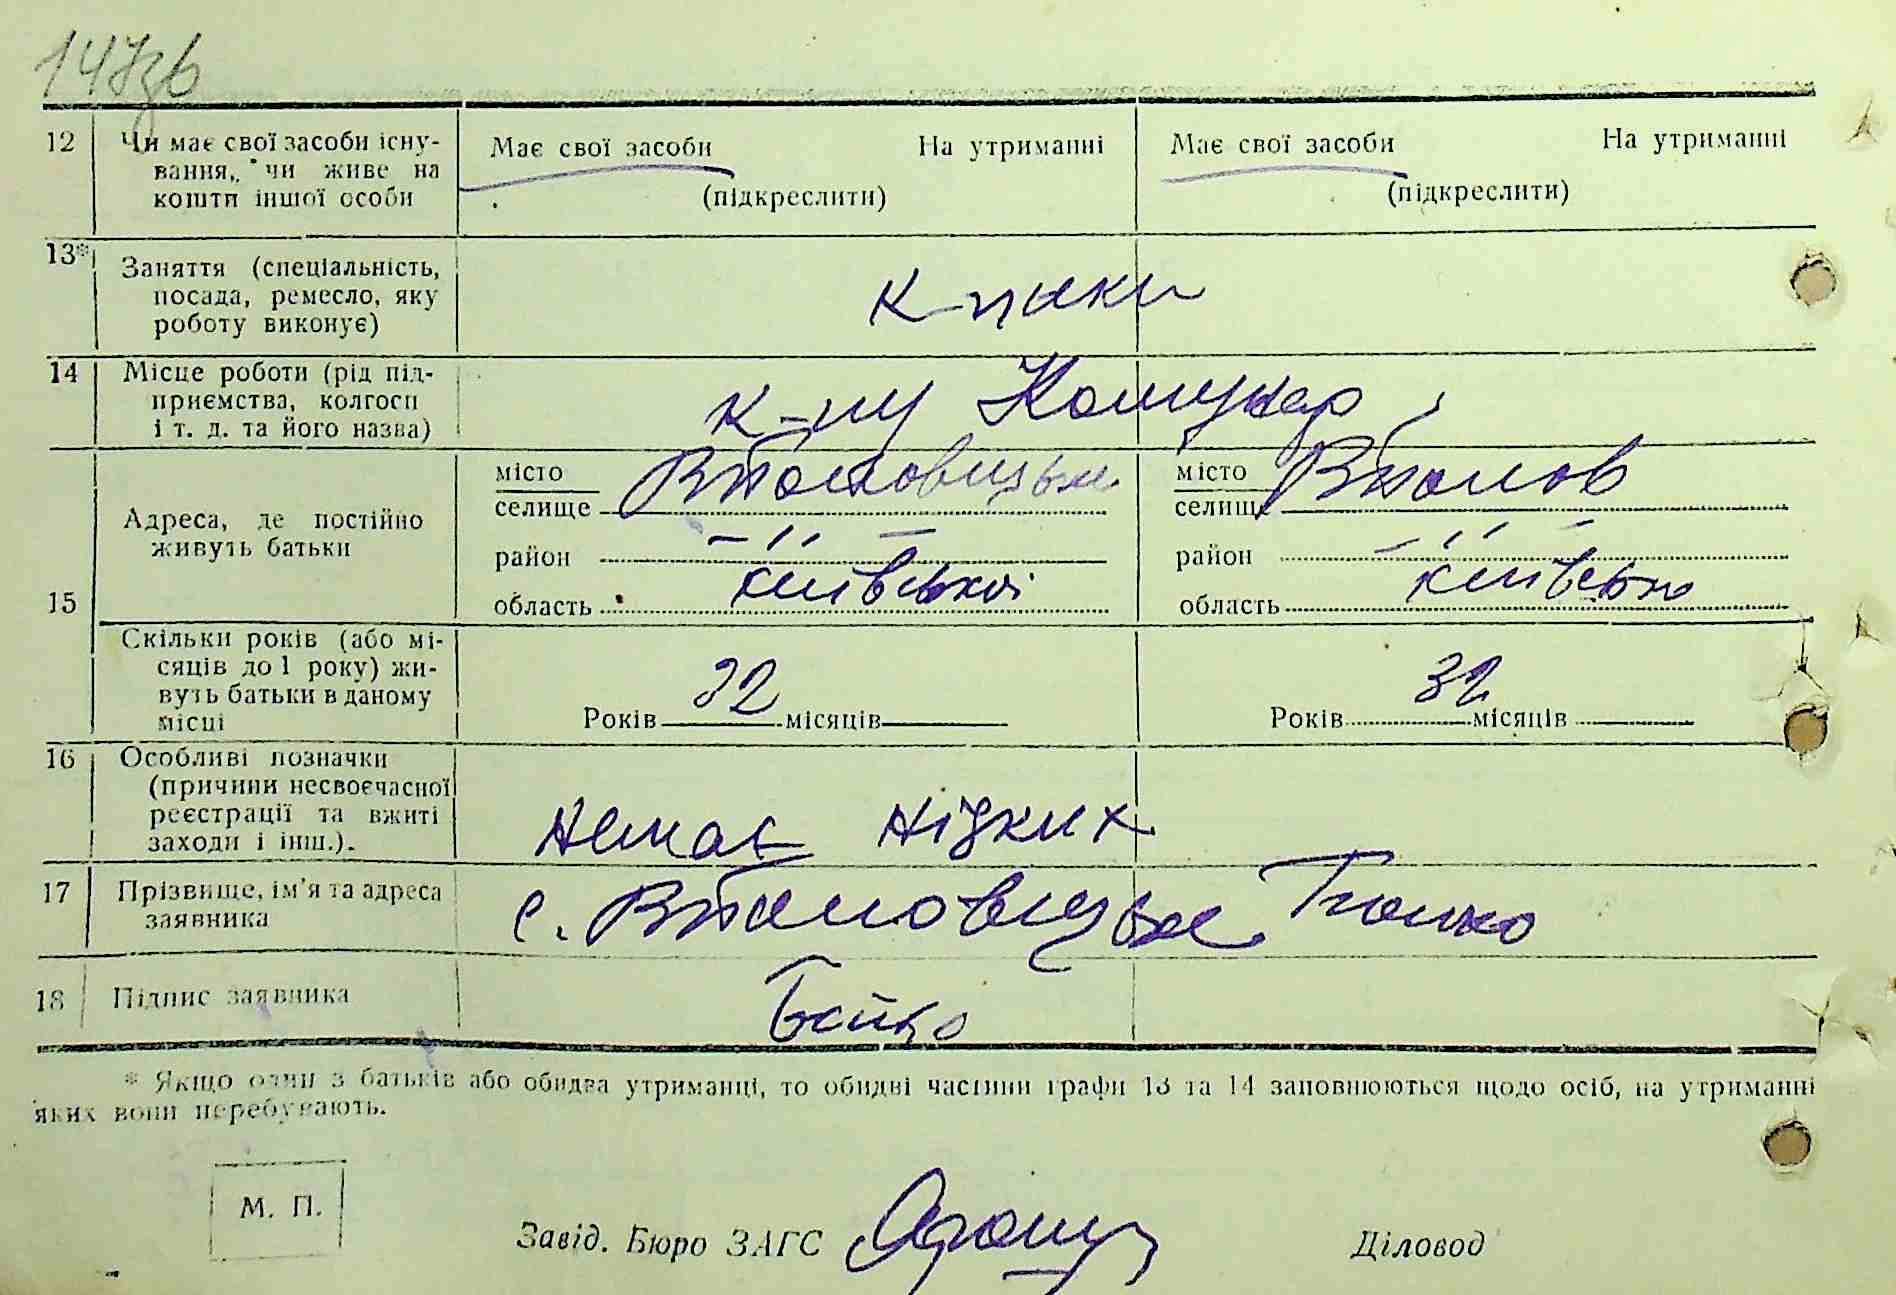 147зв
12 Чи має свої засоби існу-
вання, чи живе на
кошти іншої особи
Має свої засоби На утриманні
(підкреслити)
Має свої засоби На утриманні
(підкреслити)
13* Заняття (спеціальність,
посада, ремесло, яку
роботу виконує)
к-пики
14 Місце роботи (рід під-
приємства, колгосп
і т. д. та його назва)
к-пу Комунар
15 Адреса, де постійно
живуть батьки
місто
селище
район — 〃 —
область київської
місто
селище
район — 〃 —
область київсько
Скільки років (або мі-
сяців до 1 року) жи-
вуть батьки в даному
місці
Років 32 місяців
Років 32 місяців
16 Особливі позначки
(причини несвоєчасної
реєстрації та вжиті
заходи і інш.).
Немає ніяких
17 Прізвище, ім'я та адреса
заявника
с.
18 Підпис заявника
* Якщо один з батьків або обидва утриманці, то обидві частини графи 13 та 14 заповнюються щодо осіб, на утриманні
яких вони перебувають.
М. П.
Завід. Бюро ЗАГС
Діловод